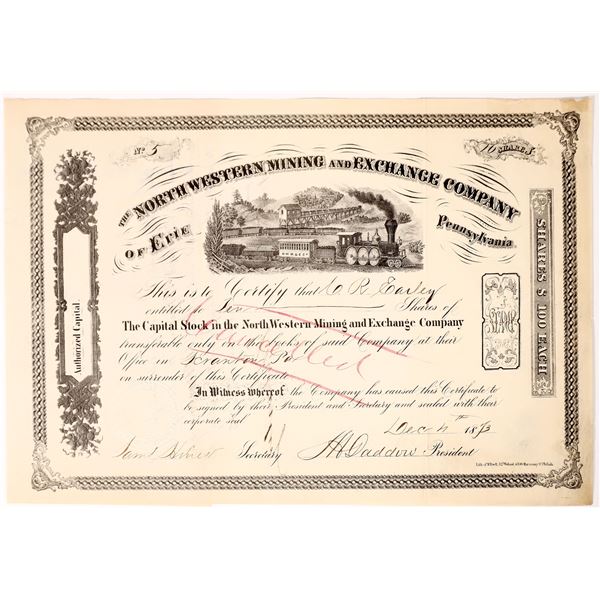 No 5
10 SHARES
THE NORTH WESTERN MINING AND EXCHANGE COMPANY
OF Erie Pennsylvania
This is to Certify that C R Earley
entitled to Ten Shares of
The Capital Stock in the North Western Mining and Exchange Company
transferable only on the Books of said Company at their
Office in Pa
on surrender of this Certificate
In Witness whereof the Company has caused this Certificate to
be signed by their President and Secretary and sealed with their
corporate seal
Dec 4th 187
Secretary
President
Authorized Capital.
SHARES $ 100 EACH
Cancelled